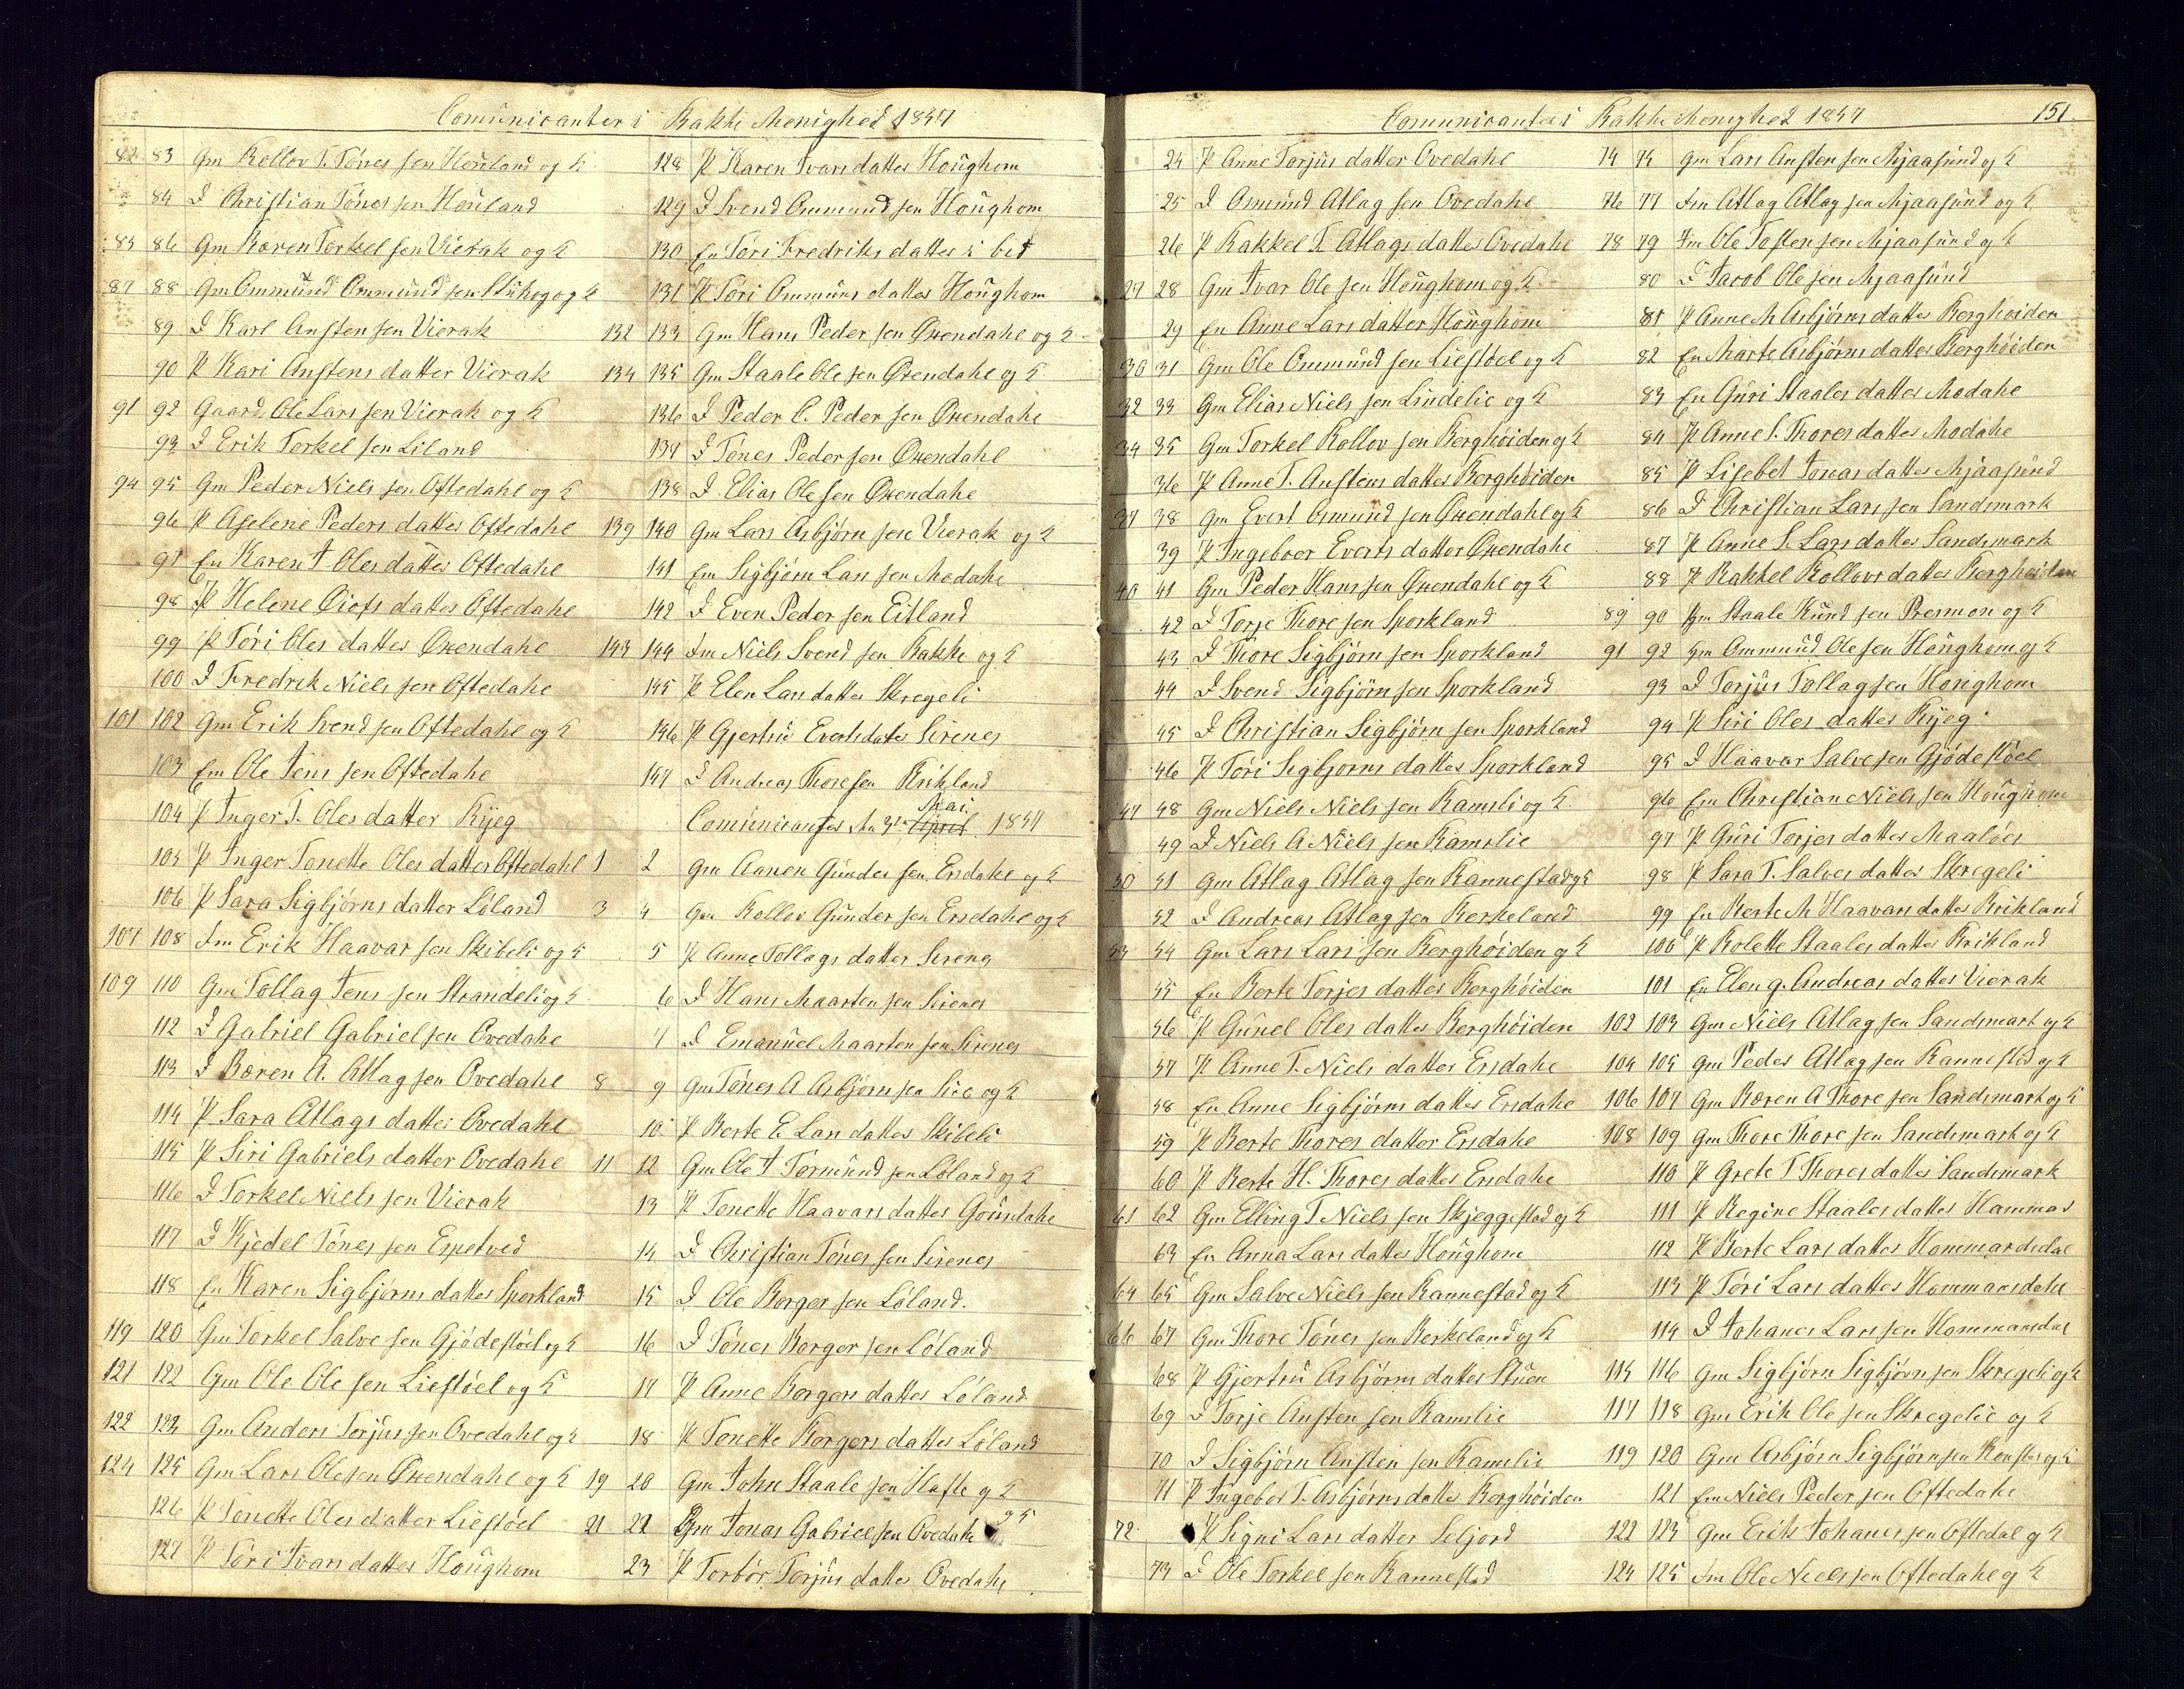 Comunicanter i Bakke Menighed 1857
82 83 Gm Rollov T. Tönes sen Houland og K
84 D Christian Tönes sen Houland
85 86 Gm Bæren Torkel sen Vierak og K
87 88 Gm Ommund Ommund sen Stuhog og K
89 D Karl Ansten sen Vierak
90 P Kari Anstens datter Vierak
91 92 Gaard. Ole Lars sen Vierak og K
93 D Erik Torkel sen Liland
94 95 Gm Peder Niels sen Oftedahl og K
96 P Aselene Peders datter Oftedahl
97 En Karen J Oles datter Oftedahl
98 P Helene datter Oftedahl
99 P Töri Oles datter Øxendahl
100 D Fredrik Niels sen Oftedahl
101 102 Gm Erik Svend sen Oftedahl og K
103 Em Ole Jens sen Oftedahl
104 P Inger T. Oles datter Rÿeg
105 P Inger Tonette Oles datter Oftedahl
106 P Sara Sigbjörns datter Löland
107 108 Im Erik Haavar sen Skibeli og K
109 110 Gm Tollag Jens sen Strandeli og K
112 D Gabriel Gabriel sen Ovedahl
113 D Bæren A. Atlag sen Ovedahl
114 P Sara Atlags datter Ovedahl
115 P Siri Gabriels datter Ovedahl
116 D Torkel Niels sen Vierak
117 D Kjedel Tönes sen Espetved
118 En Karen Sigbjörns datter Sporkland
119 120 Gm Torkel Salve sen Gjödestöel og K
121 122 Gm Ole Ole sen Liestöel og K
122 123 Gm Anders Torjus sen Ovedahl og K
124 125 Gm Lars Ole sen Øxendahl og K
126 P Tonette Oles datter Liestöel
127 P Töri Ivars datter Houghom
128 P Karen Ivars datter Houghom
129 D Svend Ommund sen Houghom
130 En Töri Fredriks datter i bet
131 P Töri Ommuns datter Houghom
132 133 Gm Hans Peder sen Øxendahl og K
134 135 Gm Staale Ole sen Øxendahl og K
136 D Peder C. Peder sen Øxendahl
137 D Tönes Peder sen Øxendahl
138 D Elias Ole sen Øxendahl
139 140 Gm Lars Asbjörn sen Vierak og K
141 Em Sigbjörn Lars sen Modahl
142 D Even Peder sen Eitland
143 144 Im Niels Svend sen Bakke og K
145 P Elen Lars datter Skregeli
146 P Gjertru Everts datter Sirenes
147 D Andreas Thore sen Birkland
Comunicanter d. 3 Mai April 1857
1 2 Gm Aanen Gunder sen Ersdahl og K
3 4 Gm Rollov Gunder sen Ersdahl og K
5 P Anne Tollags datter Sirenes
6 D Hans Maarten sen Sirenes
7 D Emanuel Maarten sen Sirenes
8 9 Gm Tönes A Asbjörn sen Sire og K
10 P Berte E Lars datter Skibeli
11 12 Gm Ole J Tormund sen Löland og K
13 P Tonette Haavars datter Gousdahl
14 D Christian Tönes sen Sirenes
15 D Ole Borger sen Löland.
16 D Tönes Borger sen Löland
17 P Anne Borgers datter Löland
18 P Tonette Borgers datter Löland
19 20 Gm John Staale sen Hafte og K
21 22 Gm Jonas Gabriel sen Ovedahl og K
23 P Torbör Torjus datter Ovedahl
Comunicanter i Bakke Menighed 1857 151.
24 P Anne Torjus datter Ovedahl
25 D Osmund Atlag sen Ovedahl
26 P Rakkel T. Atlags datter Ovedahl
27 28 Gm Ivar Ole sen Houghom og K
29 En Anne Lars datter Houghom
30 31 Gm Ole Ommund sen Liestöel og K
32 33 Gm Elias Niels sen Lindelie og K
34 35 Gm Torkel Rollov sen Berghöiden og K
36 P Anne T. Anstens datter Berghöiden
37 38 Gm Evert Osmund sen Øxendahl og K
39 P Ingeboer Everts datter Øxendahl
40 41 Gm Peder Hans sen Øxendahl og K
42 D Torje Thore sen Sporkland
43 D Thore Sigbjörn sen Sporkland
44 D Svend Sigbjörn sen Sporkland
45 D Christian Sigbjörn sen Sporkland
46 P Töri Sigbjörns datter Sporkland
47 48 Gm Niels Niels sen Ramsli og K
49 D Niels A Niels sen Ramslie
50 51 Gm Atlag Atlag sen Rannestad og K
52 D Andreas Atlag sen Berkeland
53 54 Gm Lars Lars sen Berghöiden og K
55 En Berte Torjes datter Berghöiden
56 P Gunel Oles datter Berghöiden
57 P Anne T. Niels datter Ersdahl
58 En Anne Sigbjörns datter Ersdahl
59 P Berte Thores datter Ersdahl
60 P Berte H. Thores datter Ersdahl
61 62 Gm Elling T Niels sen Skjeggestad og K
63 En Anna Lars datter Houghom
64 65 Gm Salve Niels sen Rannestad og K
66 67 Gm Thore Tönes sen Berkeland og K
68 P Gjertru Asbjörns datter Stuen
69 D Torje Ansten sen Ramslie
70 D Sigbjörn Ansten sen Ramslie
71 P Ingebor T. Asbjörns datter Berghöiden
72 P Signi Lars datter Seljord
73 D Ole Torkel sen Rannestad
74 75 Gm Lars Ansten sen Mjaasund og K
76 77 Im Atlag Atlag sen Mjaasund og K
78 79 Im Ole Tosten sen Mjaasund og K
80 D Jacob Ole sen Mjaasund
81 P Anne M Asbjörns datter Berghöiden
82 En Marte Asbjörns datter Berghöiden
83 En Guri Staales datter Modahl
84 P Anne S. Thores datter Modahl
85 P Lisebet Jonas datter Mjaasund
86 D Christian Lars sen Sandsmark
87 P Anne S. Lars datter Sandsmark
88 P Rakkel Rollovs datter Berghöiden
89 90 Gm Staale Knud sen Presmon og K
91 92 Gm Ommund Ole sen Houghom og K
93 D Torjus Tollag sen Houghom
94 P Siri Oles datter Rÿeg
95 D Haavar Salve sen Gjödestöel
96 Em Christian Niels sen Houghom
97 P Guri Torjes datter Maalöes
98 P Sara T. Salves datter Skregeli
99 En Berte M Haavars datter Birkland
100 P Bolette Staales datter Birkland
101 En Elen G. Andreas datter Vierak
102 103 Gm Niels Atlag sen Sandsmark og K
104 105 Gm Peder Atlag sen Rannestad og K
106 107 Gm Bæren A Thore sen Sandsmark og K
108 109 Gm Thore Thore sen Sandsmark og K
110 P Grete T Thores datter Sandsmark
111 P Regine Staales datter Hammar
112 P Berte Lars datter Hommarsdal
113 P Töri Lars datter Hommarsdahl
114 D Johanes Lars sen Hommarsdal
115 116 Gm Sigbjörn Sigbjörn sen Skregeli og K
117 118 Gm Erik Ole sen Skregelie og K
119 120 Gm Asbjörn Sigbjörn sen og K
121 Em Niels Peder sen Oftedahl
122 123 Gm Erik Johanes sen Oftedal og K
124 125 Im Ole Niels sen Oftedahl og K